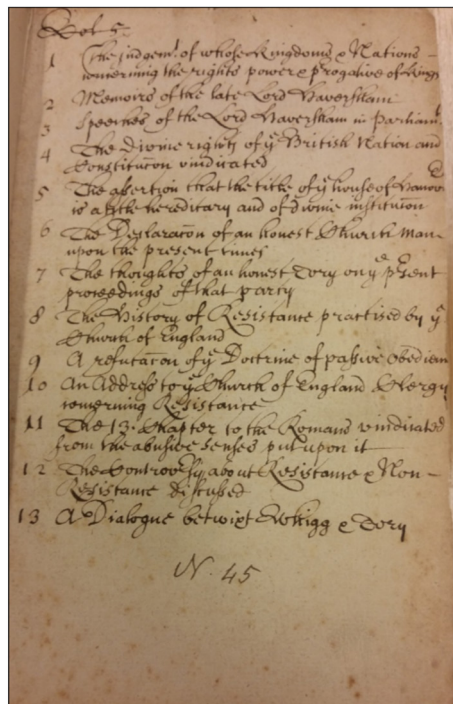 Vol 5.
1 The judgemt. of whole Kingdoms & Nations
concerning the rights power & prerogative of Kings
2 Memoirs of the late Lord Haversham
3 Speeches of the Lord Haversham in Parliamt.
4 The divine rights of ye British Nation and
Constitucon vindicated
5 The assertion that the title of ye house of Hanover
is a hereditary and of divine institucion
6 The Declaracon of an honest Church man
upon the present times
7 The thoughts of an honest Tory on ye present
proceedings of that party
8 The History of Resistance practised by ye
Church of England
9 A refutacon of ye Doctrine of passive obedien
10 An Address to ye Church of England Clergy
concerning Resistance
11 The 13. Chapter to the Romans vindicated
from the abusive senses put upon it
12 The Controversy about Resistance & Non-
Resistance discussed
13 A Dialogue betwixt Whigg & Tory
N. 45